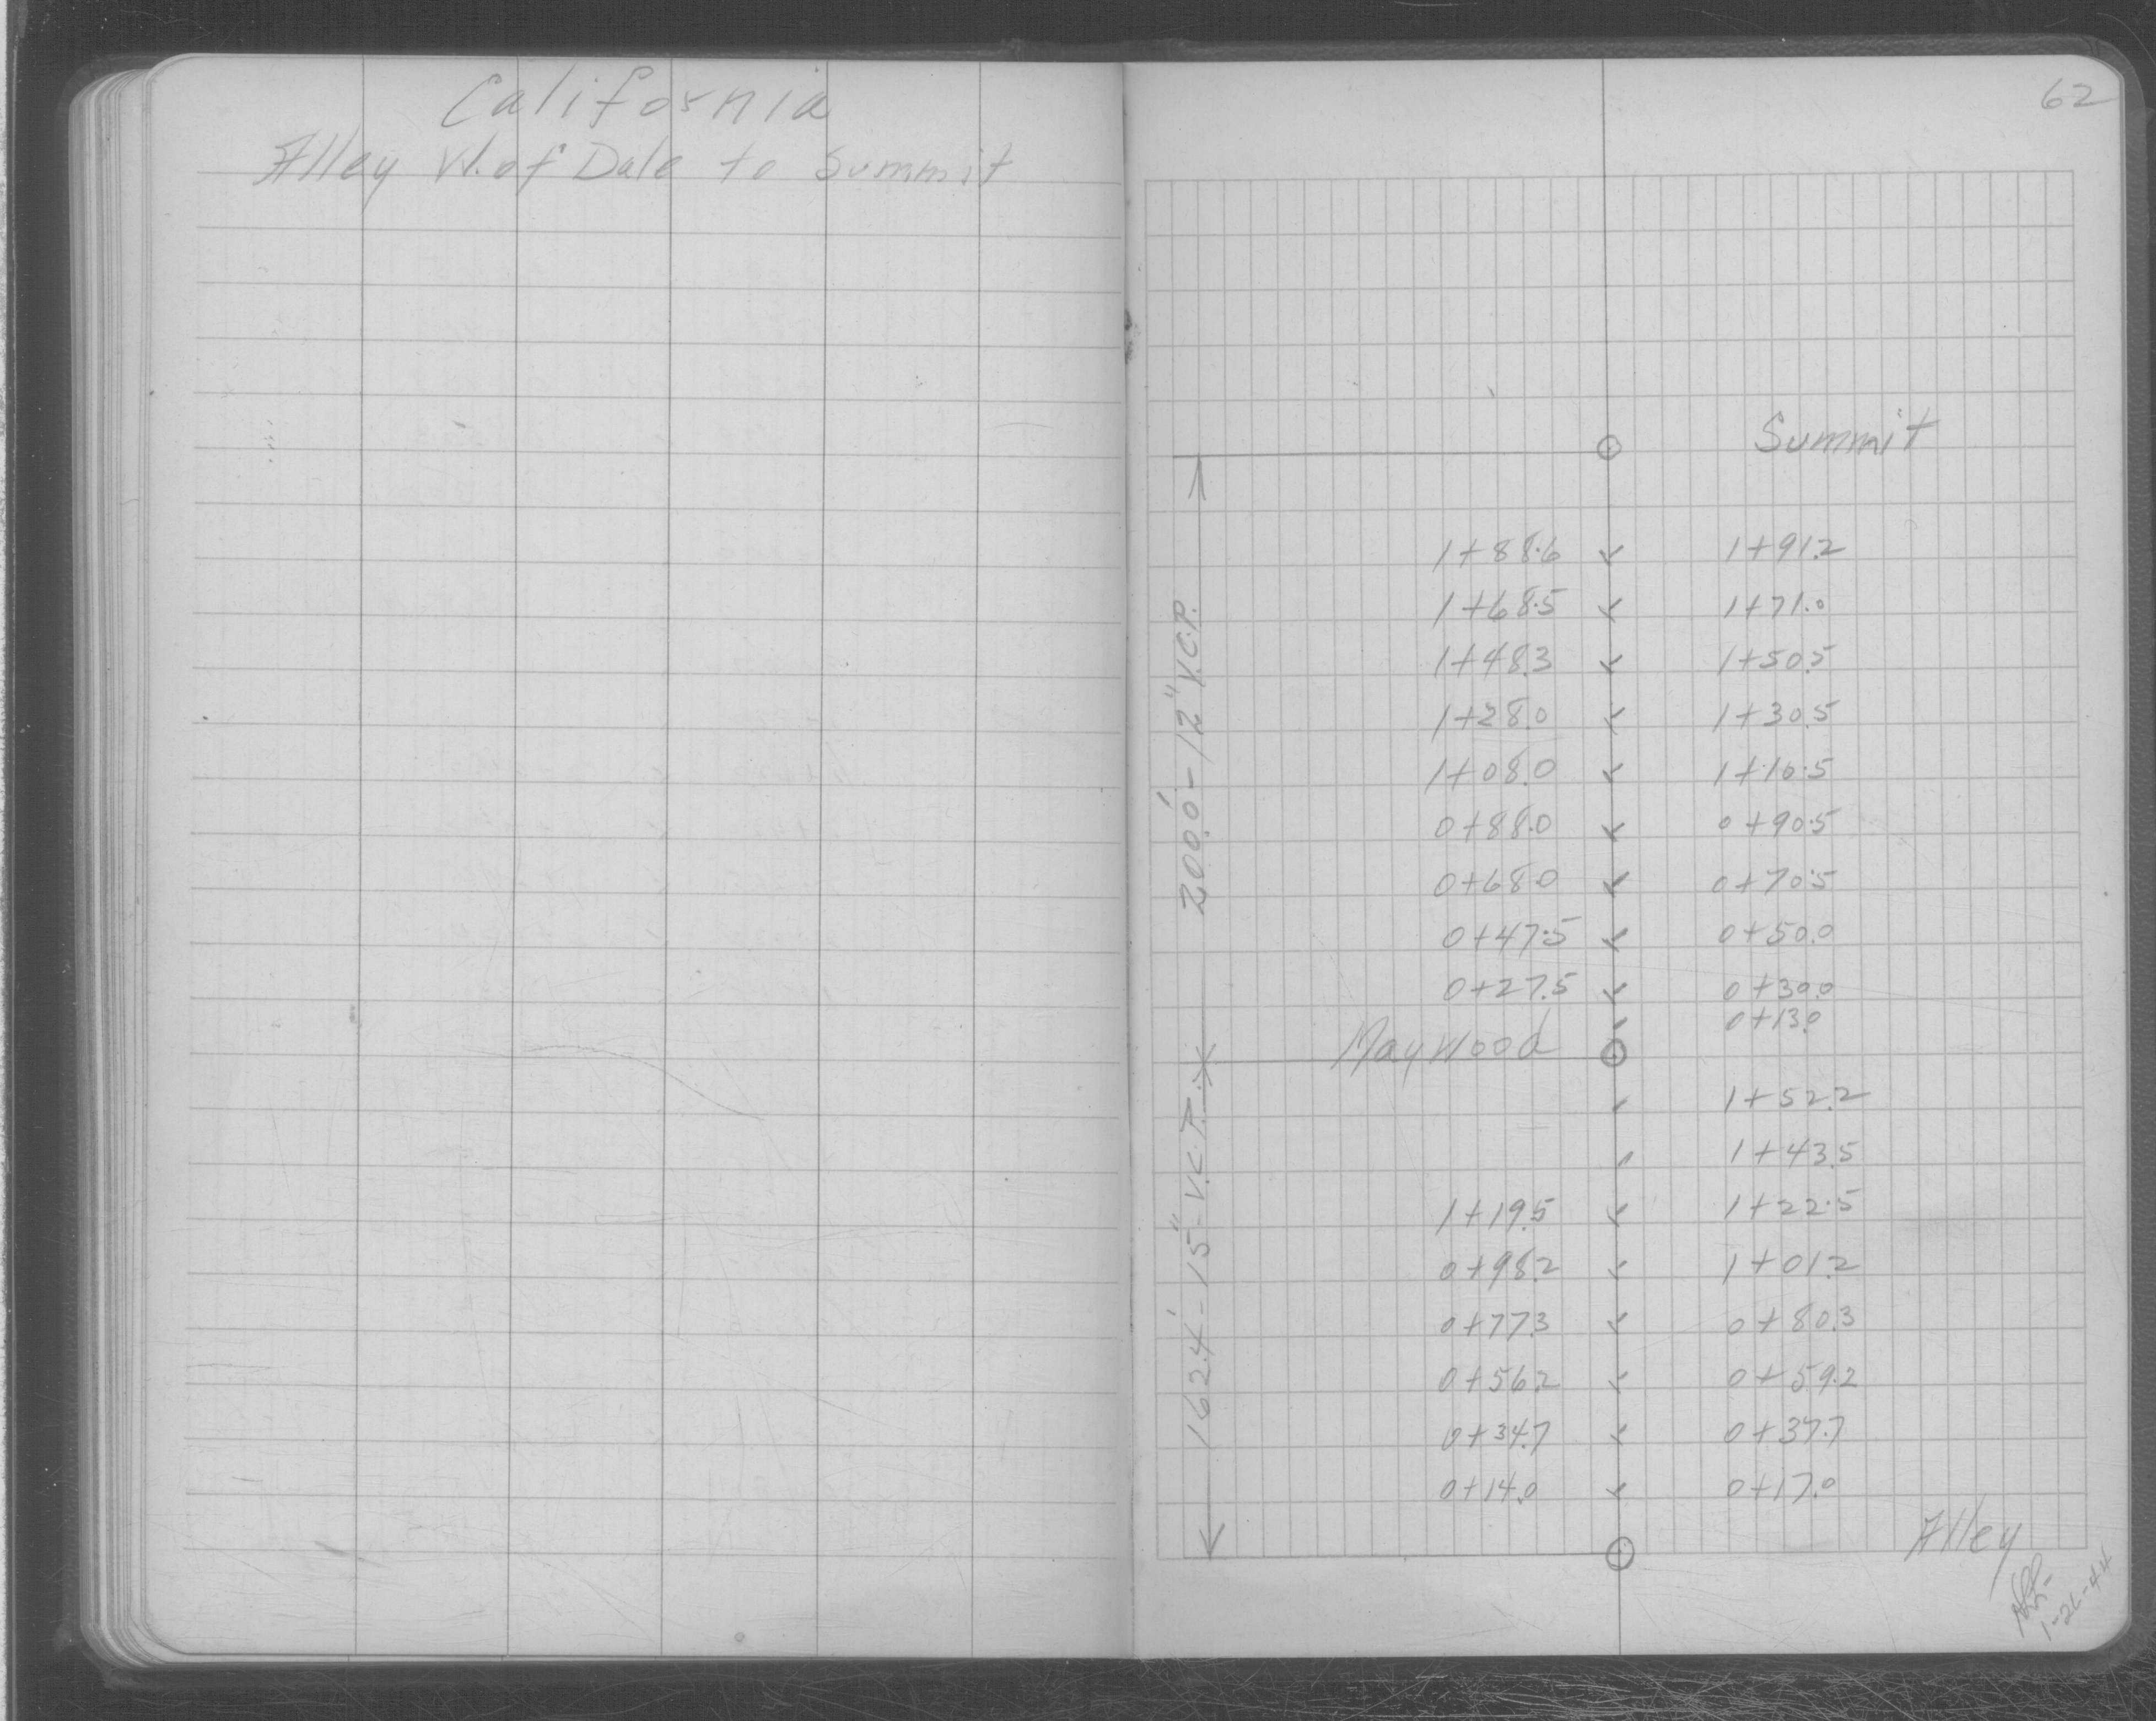 California
Alley W. of Dale to Summit
62
Summit
1+88.6 1+91.2
1+68.5 1+71.0
1+48.3 1+50.5
1+28.0 1+30.5
1+08.0 1+10.5
0+88.0 0+90.5
0+68.0 0+70.5
0+47.5 0+50.0
0+27.5 0+30.0
0+13.0
Maywood
1+52.2
1+43.5
1+19.5 1+22.5
0+98.2 1+01.2
0+77.3 0+80.3
0+56.2 0+59.2
0+34.7 0+37.7
0+14.0 0+17.0
Alley
200.0'-12" V.C.P.
162.4'-15" V.C.P.